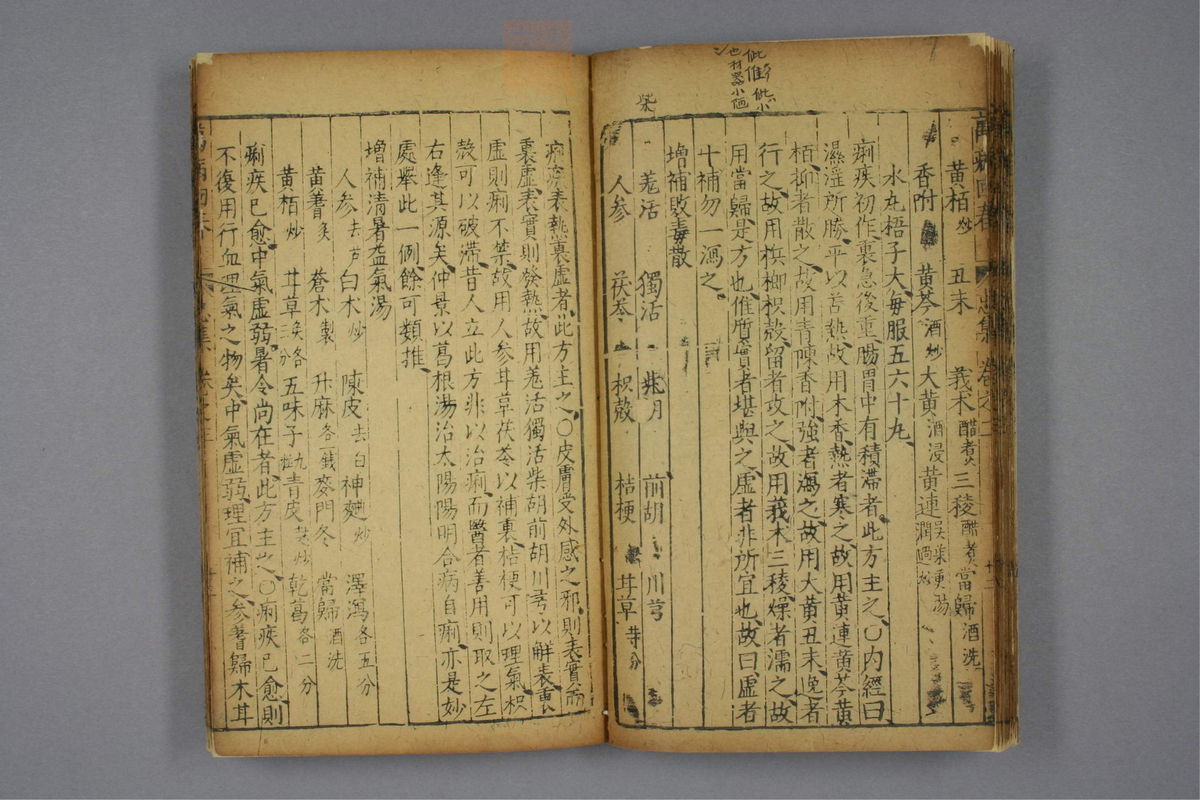 萬病回春 忠集 卷之二
黃栢炒 丑末 莪朮醋煮 三稜醋煮 當歸酒洗
香附 黃芩酒炒 大黃酒浸 黃連吳茱萸湯潤過炒
水丸梧子大每服五六十丸
痢疾初作裏急後重腸胃中有積滯者此方主之○內經曰
濕淫所勝平以苦熱故用木香熱者寒之故用黃連黃芩黃
栢抑者散之故用青陳香附強者瀉之故用大黃丑末逸者
行之故用梹榔枳殼留者攻之故用莪朮三稜燥者濡之故
用當歸是方也惟質實者堪與之虛者非所宜也故曰虛者
十補勿一瀉之
增補敗毒散
羗活 獨活 柴胡 前胡 川芎
人參 茯苓 枳殼 桔梗 甘草等分
柴
痢疾表熱裏虛者此方主之○皮膚受外感之邪則表實而
裏虛表實則發熱故用羗活獨活柴胡前胡川芎以解表裏
虛則痢不禁故用人參甘草茯苓以補裏桔梗可以理氣枳
殼可以破滯昔人立此方非以治痢而醫者善用則取之左
右逢其源矣仲景以葛根湯治太陽陽明合病自痢亦是妙
處舉此一例餘可類推
增補清暑益氣湯
人參去芦 白朮炒 陳皮去白 神麯炒 澤瀉各五分
黃耆炙 蒼朮製 升麻各一錢 麥門冬 當歸酒洗
黃栢炒 甘草炙各三分 五味子九粒 青皮麸炒 乾葛各二分
痢疾已愈中氣虛弱暑令尚在者此方主之○痢疾已愈則
不復用行血理氣之物矣中氣虛弱理宜補之參耆歸朮甘